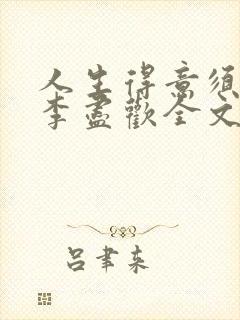 人生得意须
李盡歡全文
吕聿来